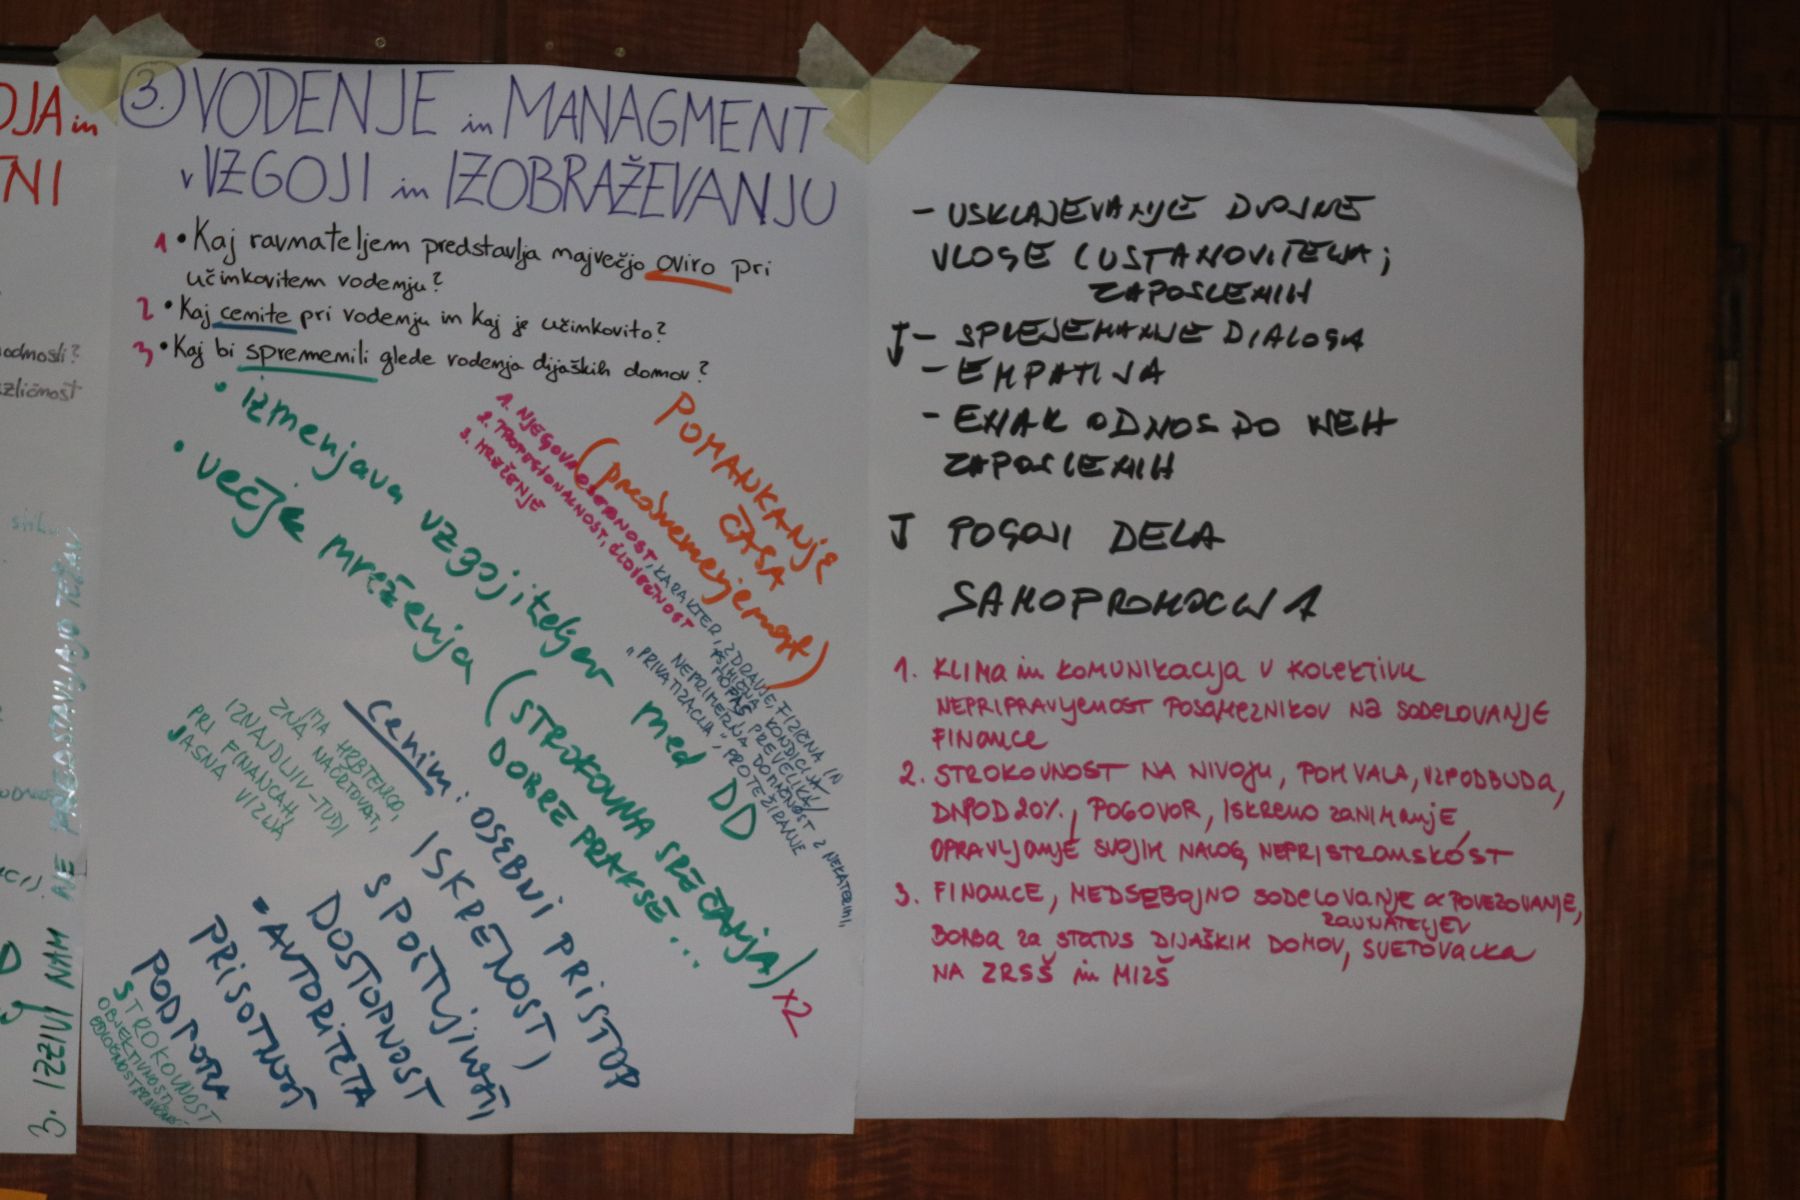 OJA in
TNI
odnosti?
zličnost
3. IZZIVI NAM NE PREDSTAVLJAJO TEŽAV
3. VODENJE in MANAGMENT
v VZGOJI in IZOBRAŽEVANJU
1 • Kaj ravnateljem predstavlja največjo oviro pri
učinkovitem vodenju?
2 • Kaj cenite pri vodenju in kaj je učinkovito?
3 • Kaj bi spremenili glede vodenja dijaških domov?
• izmenjava vzgojiteljev med DD
• večje mreženja (STROKOVNA SREČANJA)
DOBRE PRAKSE...
x2
POMANKANJE
ČASA
(preobremenjenost)
1. NJEGOVA OSEBNOST, KARAKTER, ZDRAVJE, FIZIČNA IN
PSIHIČNA KONDICIJA
2. PROFESIONALNOST, ČLOVEČNOST
3. MREŽENJE
NEPRIMERNA DOMAČNOST Z NEKATERIMI,
"PRIVATIZACIJA", PROTEŽIRANJE
IMA HRBTENICO,
ZNA NAČRTOVAT,
IZNAJDLJIV - TUDI
PRI FINANCAH,
JASNA VIZIJA
cenim: OSEBNI PRISTOP
ISKRENOST)
SPOŠTLJIVOST
DOSTOPNOST
• AVTORITETA
PRISOTNOST
PODPORA
STROKOVNOST
OBJEKTIVNOST
- USKLAJEVANJE DVOJNE
VLOGE (USTANOVITELJA;
ZAPOSLENIH
- SPREJEMANJE DIALOGA
- EMPATIJA
- ENAK ODNOS DO VSEH
ZAPOSLENIH
POGOJI DELA
SAMOPROMOCIJA
1. KLIMA in KOMUNIKACIJA V KOLEKTIVU
NEPRIPRAVLJENOST POSAMEZNIKOV NA SODELOVANJE
FINANCE
2. STROKOVNOST NA NIVOJU, POHVALA, VZPODBUDA,
DNPOD 20%, POGOVOR, ISKRENO ZANIMANJE,
OPRAVLJANJE SVOJIH NALOG, NEPRISTRANSKOST
3. FINANCE, MEDSEBOJNO SODELOVANJE & POVEZOVANJE,
RAVNATELJEV
BORBA za STATUS DIJAŠKIH DOMOV, SVETOVALKA
NA ZRSŠ in MIZŠ